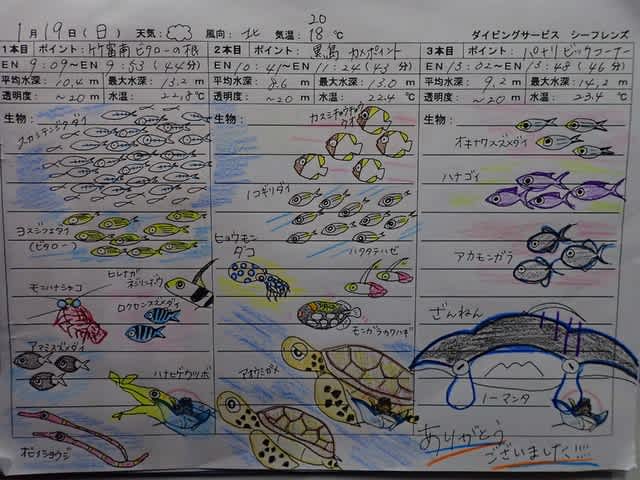 1月19日(日) 天気: 風向: 北 気温: 20 18℃ ダイビングサービス シーフレンズ
1本目 ポイント: 竹富南ビタローの根
EN 9:09〜EN 9:53 (44分)
平均水深: 10.4m 最大水深: 13.2m
透明度: ~20m 水温: 22.8℃
生物:
スカシテンジクダイ
ヨスジフエダイ
(ビタロー)
モンハナシャコ
ヒレナガ
ネジリンボウ
ロクセンスズメダイ
アマミスズメダイ
ハナヒゲウツボ
オイランヨウジ
2本目 ポイント: 黒島 カメポイント
EN 10:41〜EN 11:24 (43分)
平均水深: 8.6m 最大水深: 13.0m
透明度: ~20m 水温: 22.4℃
生物:
カスミチョウチョウ
ダイ
ノコギリダイ
ヒョウモン
ダコ
ハタタテハゼ
モンガラカワハギ
アオウミガメ
3本目 ポイント: パナリ ビックコーナー
EN 13:02〜EN 13:48 (46分)
平均水深: 9.2m 最大水深: 14.2m
透明度: ~20m 水温: 23.4℃
生物:
オキナワスズメダイ
ハナゴイ
アカモンガラ
ざんねん
ノーマンタ
ありがとう
ございました!!!!